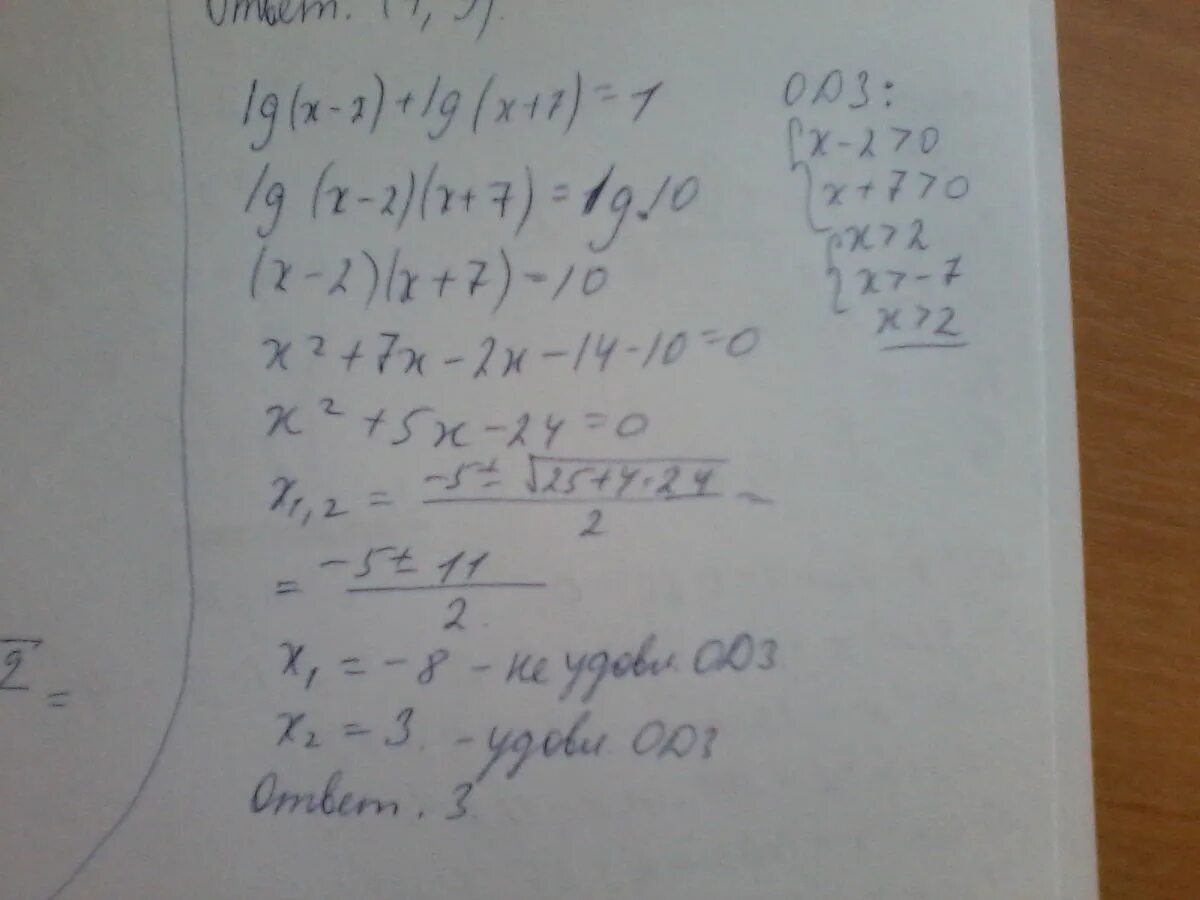 Ответ. (
lg(x-2)+lg(x+7)=1
lg(x-2)(x+7)=lg10
(x-2)(x+7)=10
x²+7x-2x-14-10=0
x²+5x-24=0
x₁,₂ = (-5±√(25+4·24))/2 =
= (-5±11)/2
x₁ = -8 - не удовл. ОДЗ
x₂ = 3. - удовл ОДЗ
Ответ. 3.
ОДЗ:
{x-2>0
x+7>0
{x>2
x>-7
x>2
2
=